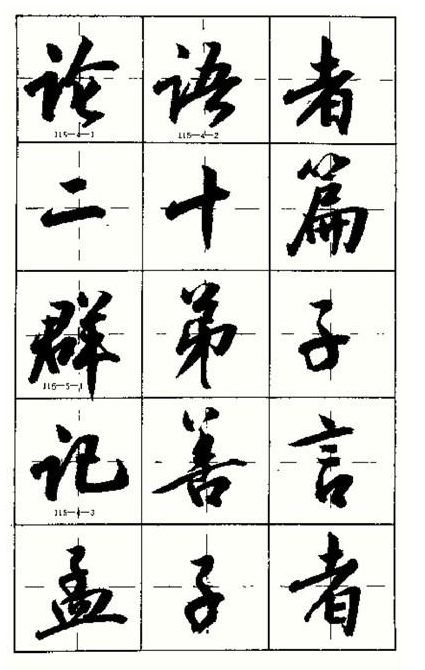 论语者
115-4-1 115-4-2
二十篇
群弟子
116-5-1
记善言
115-4-3
孟子者